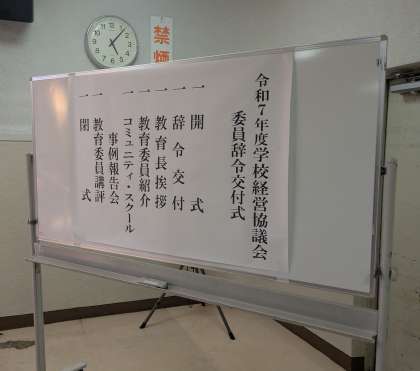 禁煙
令和7年度学校経営協議会
委員辞令交付式
一 開式
一 辞令交付
一 教育長挨拶
一 教育委員紹介
一 コミュニティ・スクール
事例報告会
一 教育委員講評
一 閉式